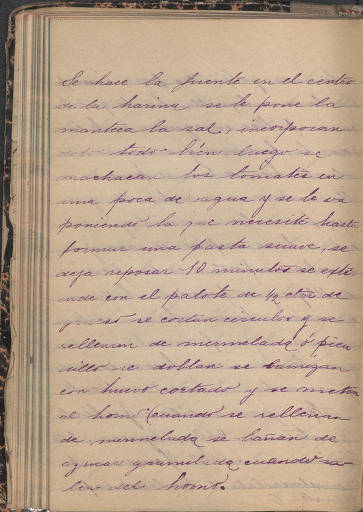 Se hace la fuente en el centro
de la harina se le pone la
manteca la sal, incorporan
todo bién luego se
machacan los tomates en
una poca de agua y se le va
poniendo la que necesite hasta
formar una pasta suave, se
deja reposar 10 minutos se esti
ende con el palote de 1/2 ctm de
grueso se cortan circulos y se
rellenan de mermelada ó pica
dillo se doblan se barnizan
con huevo cortado y se meten
al horno (cuando se rellenan
de mermelada se bañan de
azucar granulada cuando sa
len del horno.